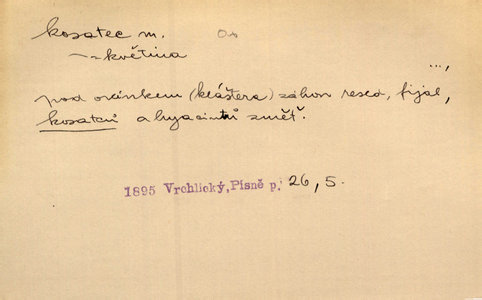 kosatec m.
— = květina
...,
pod okénkem (kláštera) záhon resed, fijal,
kosatců a hyacintů změť.
1895 Vrchlický, Písně p. 26, 5.